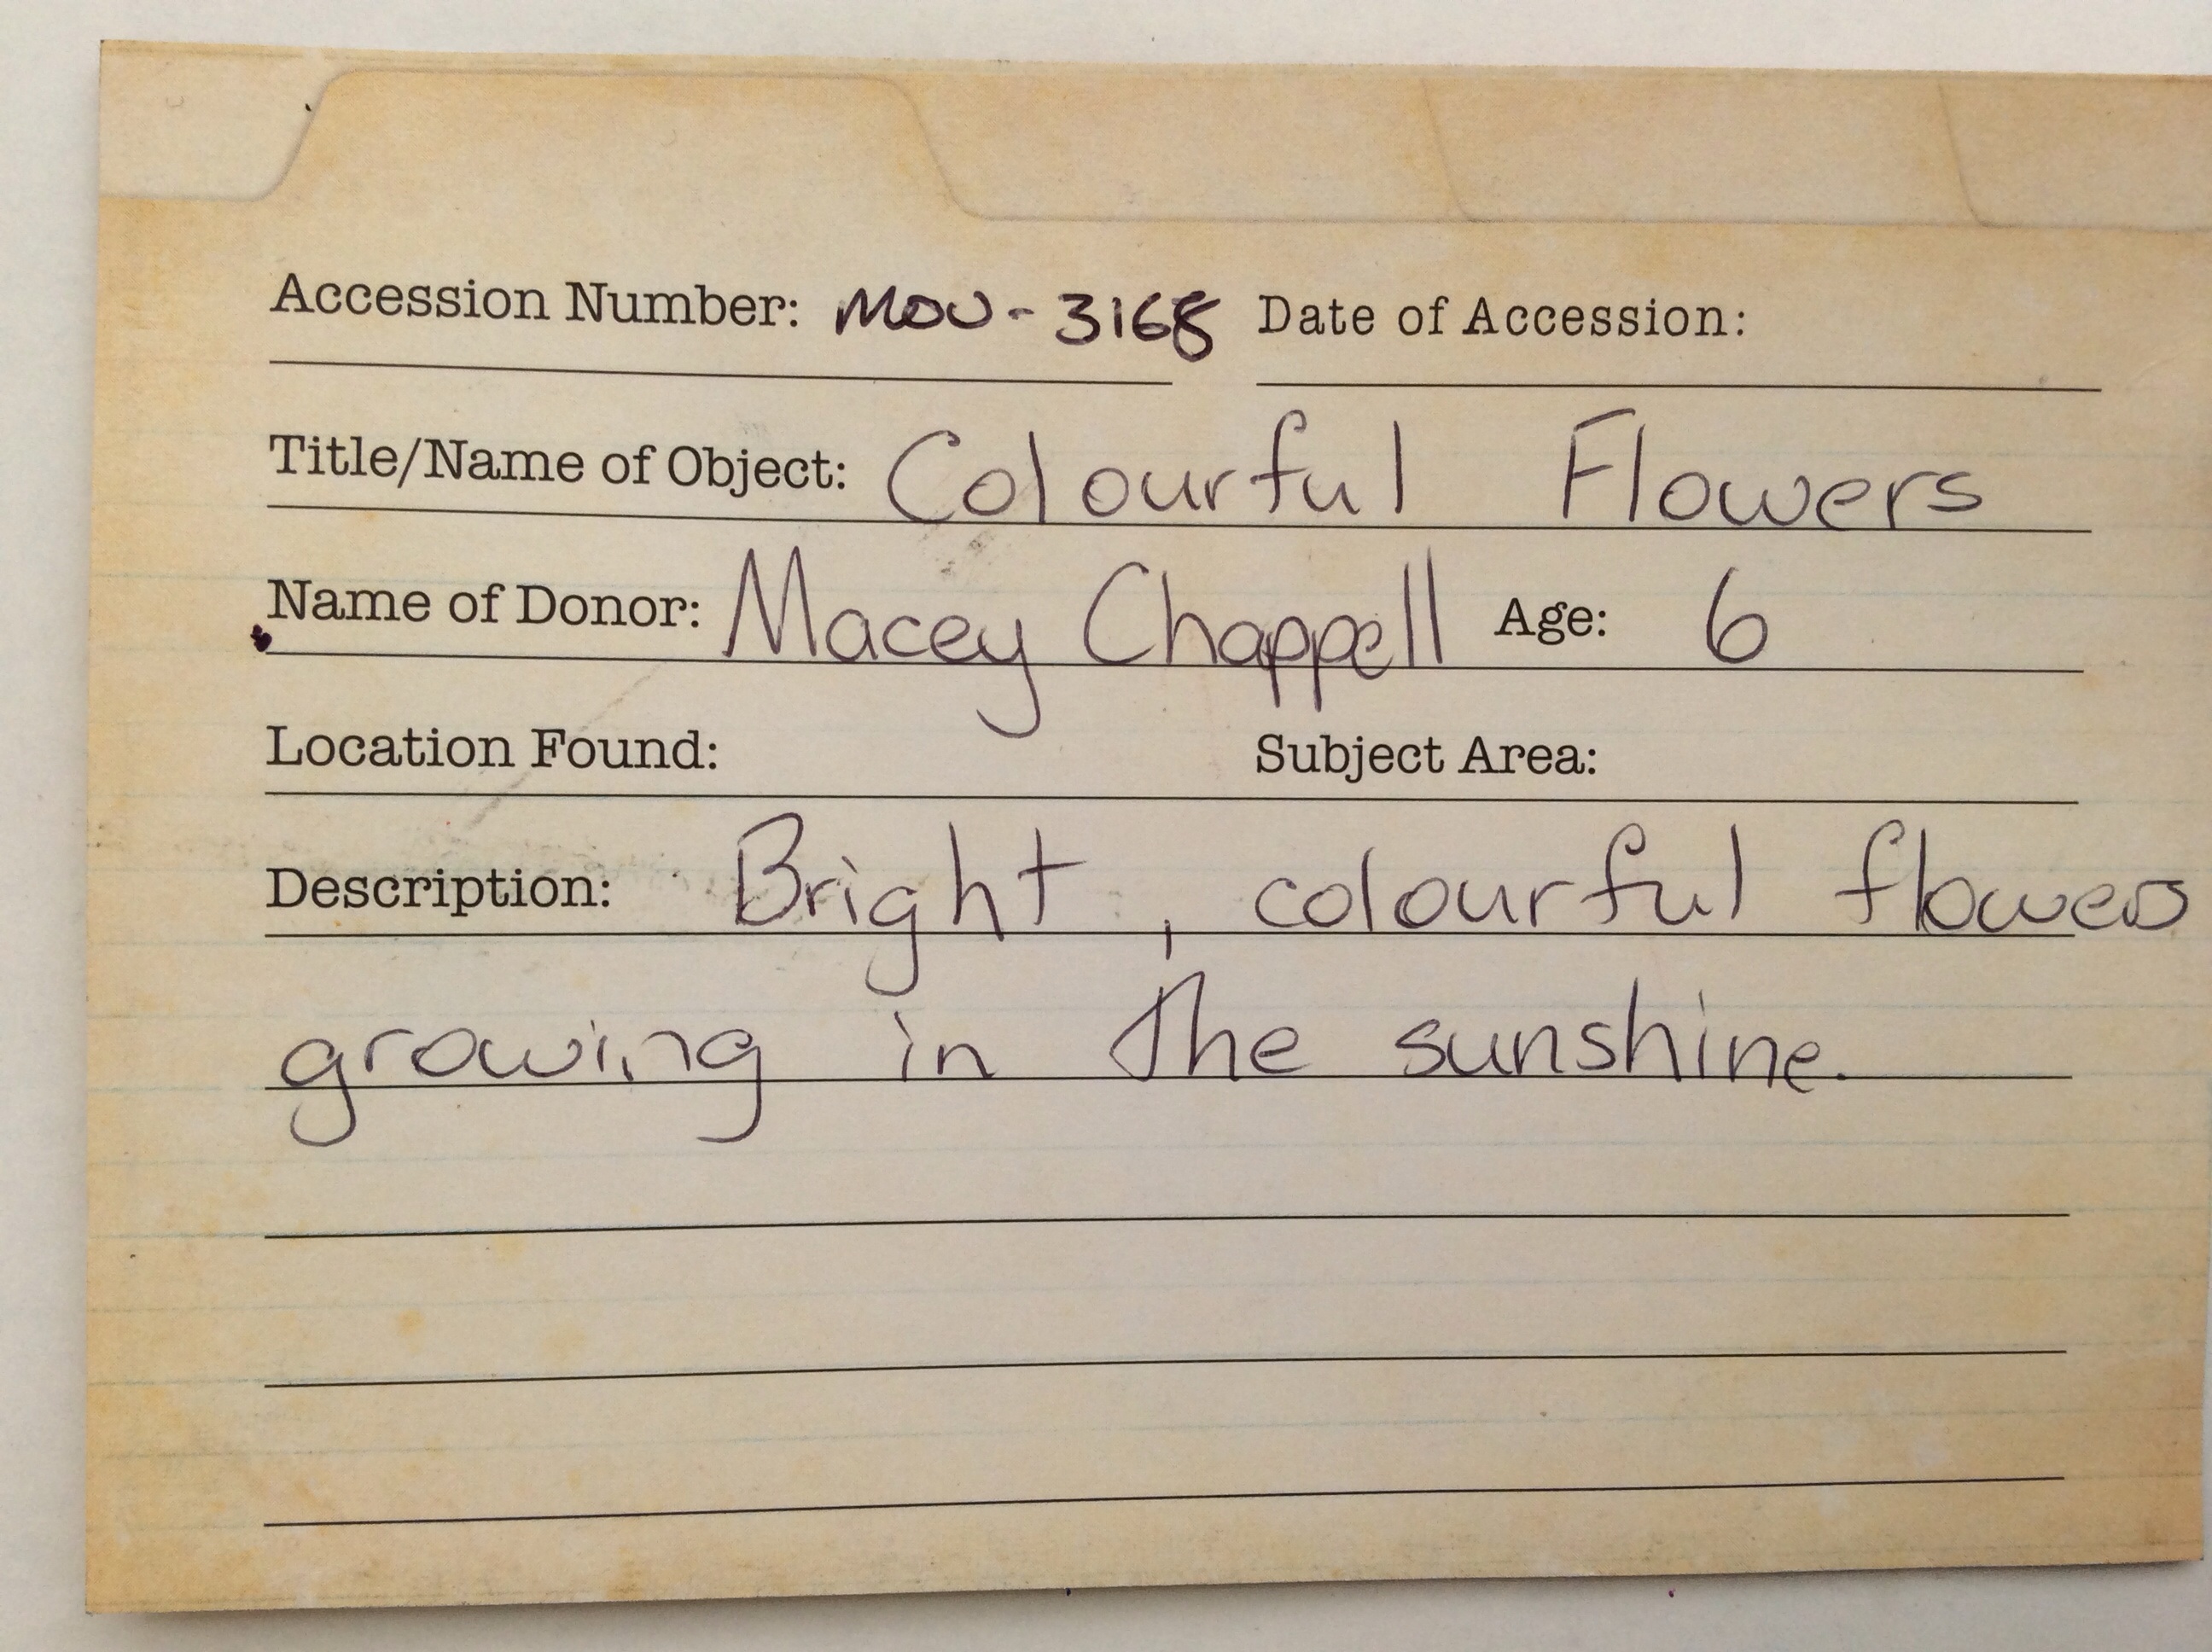 Accession Number: MOU-3168 Date of Accession:
Title/Name of Object: Colourful Flowers
Name of Donor: Macey Chappell Age: 6
Location Found: Subject Area:
Description: Bright, colourful flowers
growing in the sunshine.